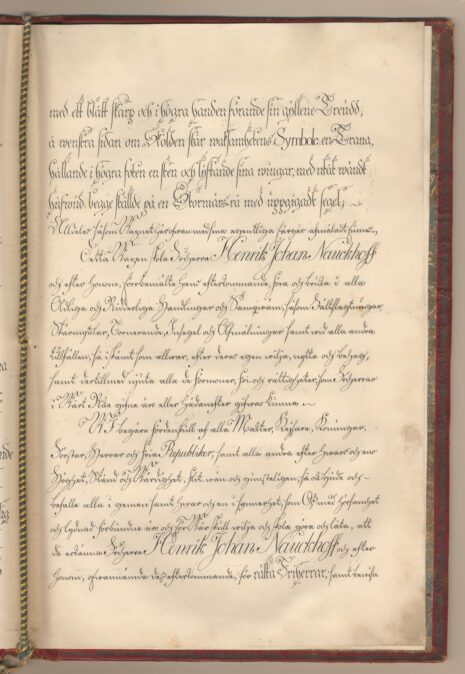 med ett blått skärp och i högra handen förande sin gyllene Treudd;
å wenstra sidan om Skölden står waksamhetens Symbole en Trana,
hållande i högra foten en sten och lyftande sina wingar, med utåt wändt
hufwud, begge stälde på en Stormärs-rå med uppgigadt segel;
Alldeles såsom Wapnet härofwan med sina egenteliga färgor afmåladt finnes.
Detta Wapen skola Friherre Henrik Johan Nauckhoff
och efter honom, förbemälte hans efterkommande, föra och bruka i alla
Adeliga och Ridderliga Handlingar och Kämpespel, såsom Fältslagtningar,
Stormgånar, Tornerande, Insegel och Afmålningar samt wid alla andra
tillfällen, så i skämt som allwar, efter deras egen wilja, nytta och behag,
samt dertillmed njuta alla de förmoner, fri och rättigheter, som Friherrar
i Wårt Rike gifne äro eller hädanefter gifwas kunna.
Wi begäre fördenskull af alla Magter, Kejsare, Konungar,
Förstar, Herrar och fria Republiker, samt alla andra efter hwars och ens
Höghet, Stånd och Wärdighet, flit- wän- och gunsteligen, så ock bjude och
befalle alla i gemen samt hwar och en i synnerhet, som Oss med hörsamhet
och lydnad förbundne äro och för Wår skull wilja och skola göra och låta, att
de erkänna Friherre Henrik Johan Nauckhoff och efter
honom, ofwannämnda des efterkommande, för rätta Friherrar, samt bewisa